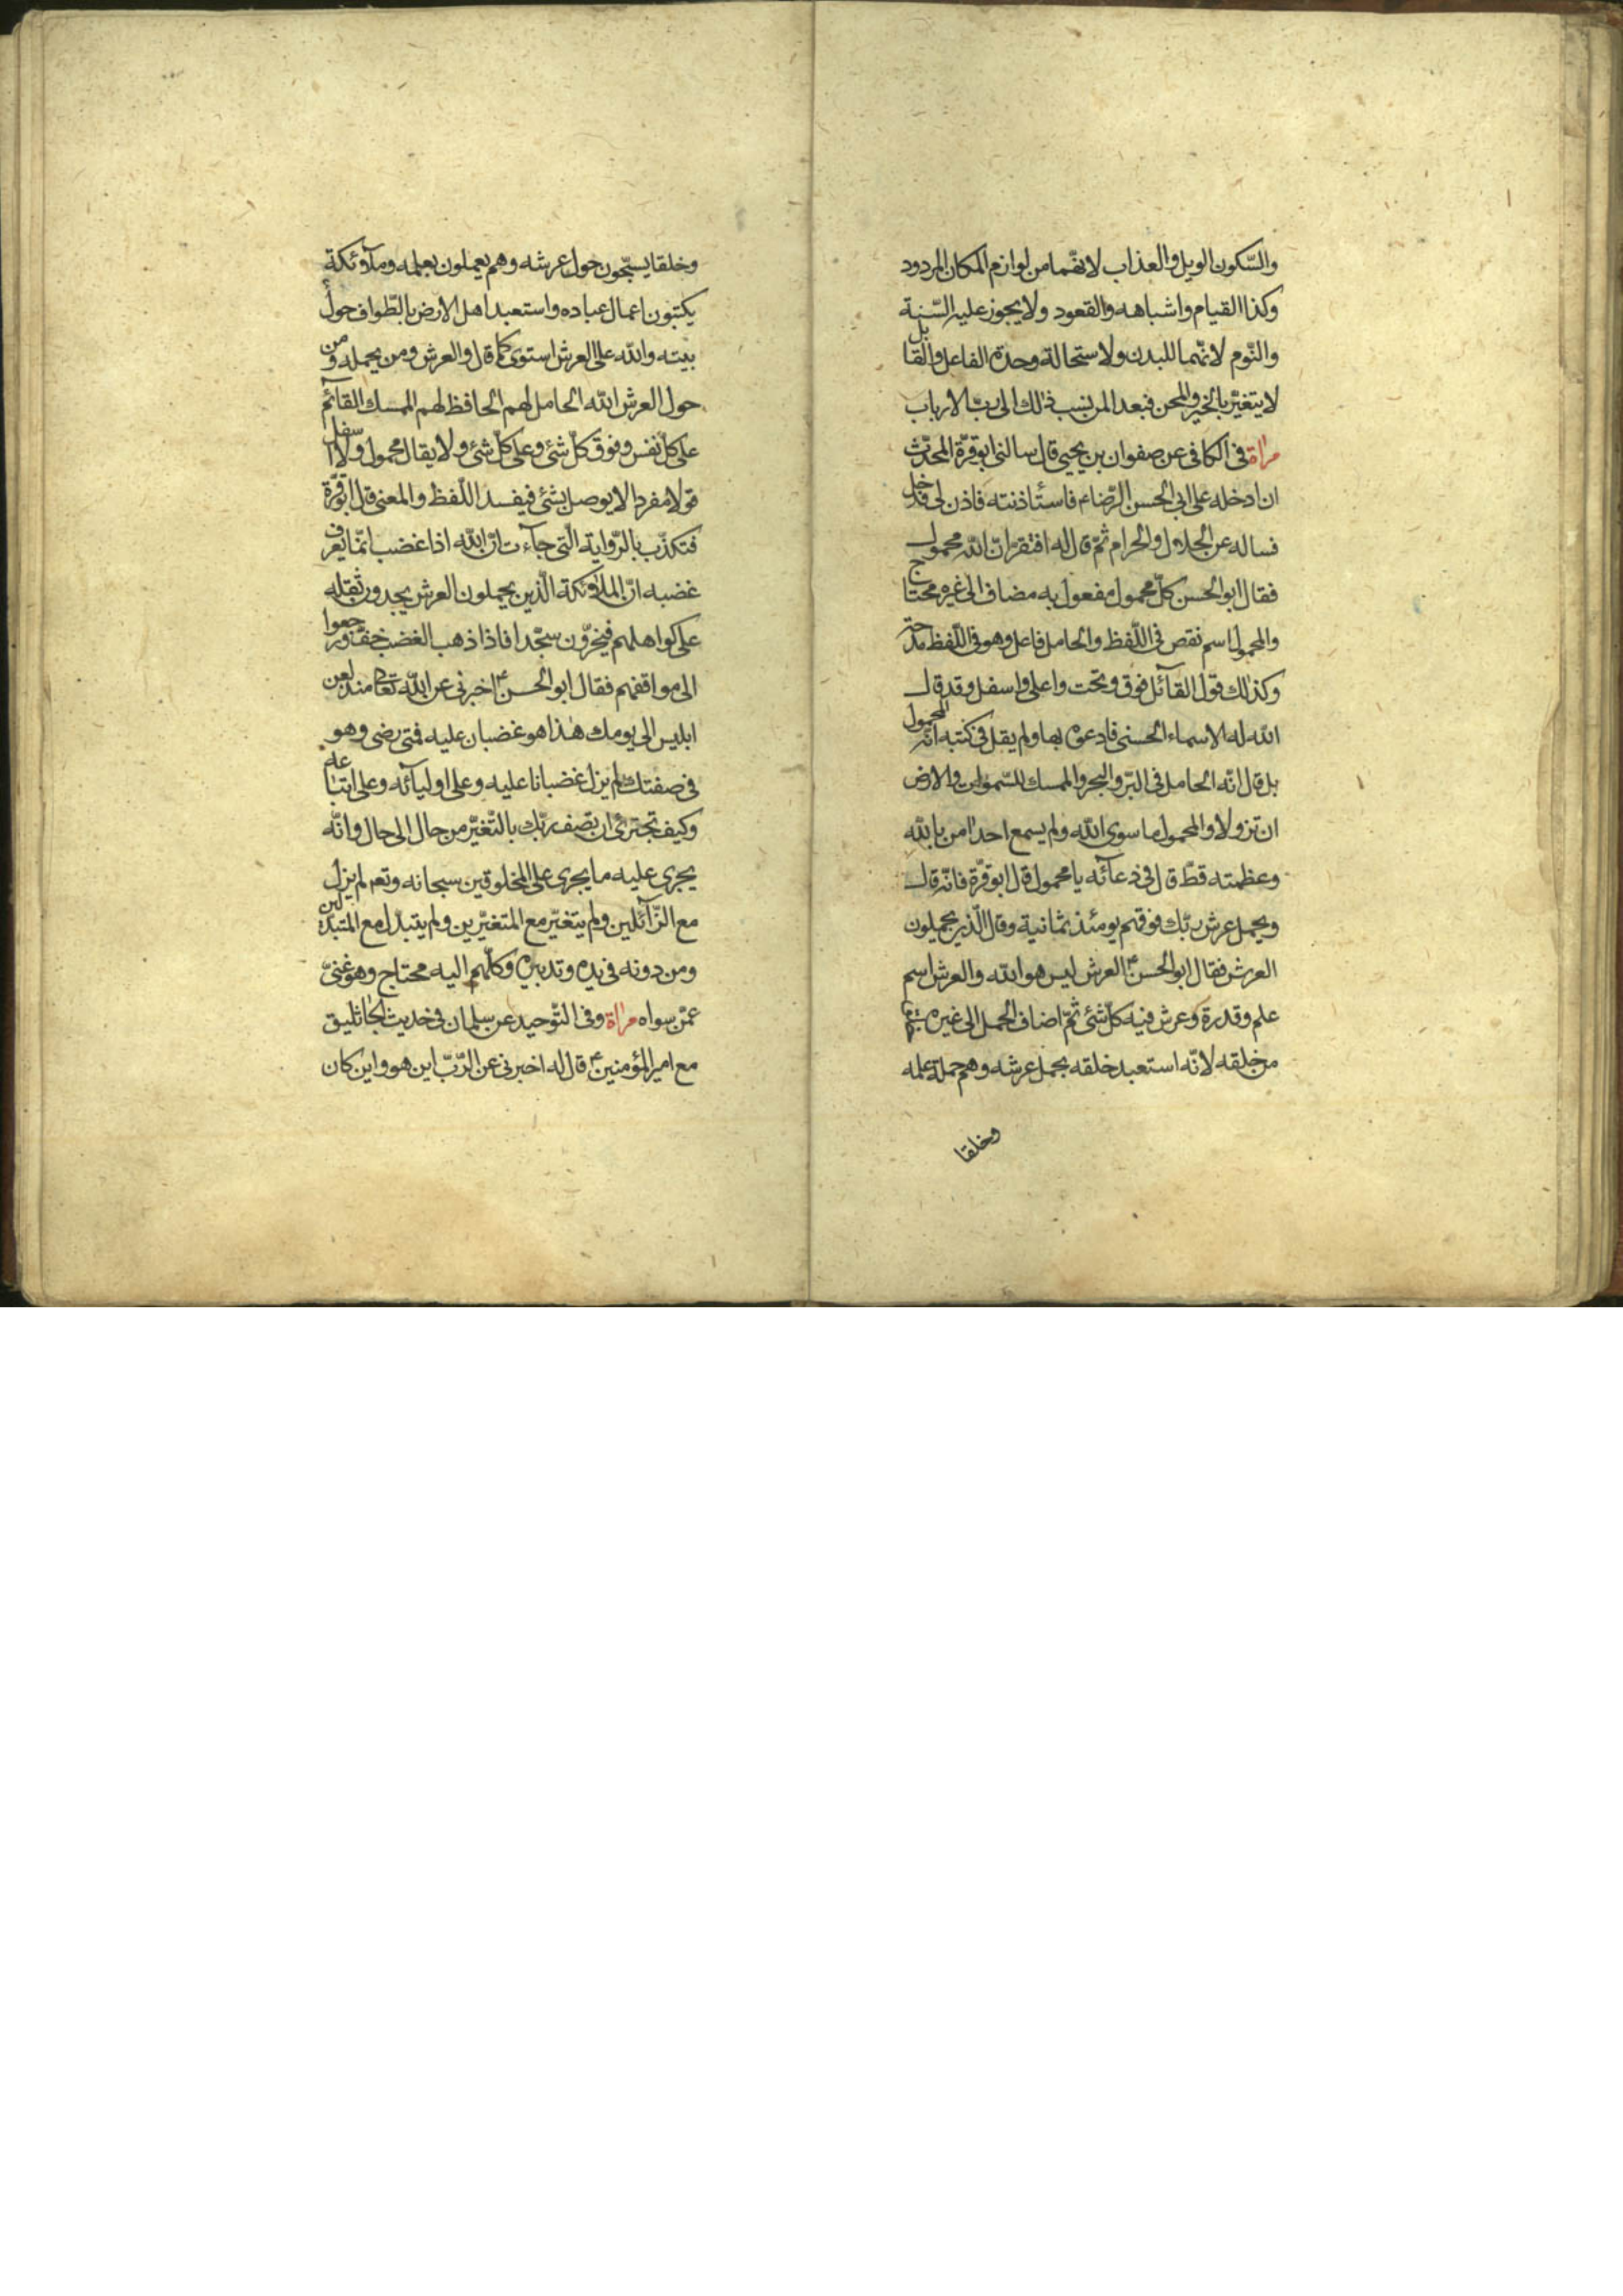 والسّكون الويل والعذاب لانهّما من لوازم المكان المردود
وكذا القيام واشباهه والقعود ولا يجوز عليه السّنة
والنّوم لانّهما للبدن ولاستحالة وحدة الفاعل والقابل
لا يتغيّر بالخير والمحن فبعدا لمن نسب ذلك الى ربّ الارباب
مراة فى الكافى عن صفوان بن يحيى قال سالنى ابو قرّة المحدّث
ان ادخله على ابى الحسن الرّضاء فاستأذنته فاذن لى فدخل
فساله عن الحلال والحرام ثمّ قال له افتقرّ انّ الله محمول
فقال ابو الحسن كلّ محمول مفعول به مضاف الى غيره محتاج
والمحمول اسم نقص فى اللّفظ والحامل فاعل وهو فى اللّفظ مدحة
وكذلك قول القآئل فوق وتحت واعلى واسفل وقد قال
الله له الاسماء الحسنى فادعوه بها ولم يقل فى كتبه انّه المحمول
بل قال انّه الحامل فى البرّ والبحر والممسك للسّموات والارض
ان تزولا والمحمول ما سوى الله ولم يسمع احدا من بالله
وعظمته قطّ قال فى دعآئه يا محمول قال ابو قرّة فانّه قال
ويحمل عرش ربّك فوقهم يومئذ ثمانية وقال الّذين يحملون
العرش فقال ابو الحسن ع العرش ليس هو الله والعرش اسم
علم وقدرة وعرش فيه كلّ شئ ثمّ اضاف الحمل الى غيره
من خلقه لانّه استعبد خلقه بحمل عرشه وهم حملة علمه
وخلقا
وخلقا يسبّحون حول عرشه وهم يعملون بعلمه وملآئكة
يكتبون اعمال عباده واستعبد اهل الارض بالطّواف حول
بيته والله على العرش استوى كما قال والعرش ومن يحمله ومن
حول العرش الله الحامل لهم الحافظ لهم الممسك القآئم
على كلّ نفس وفوق كلّ شئ وعلى كلّ شئ ولا يقال محمول ولا اسفل
قولا مفردا لا يوصل بشئ فيفسد اللّفظ والمعنى قال ابو قرّة
فتكذّب بالرّواية الّتى جآءت انّ الله اذا غضب انمّا يعرف
غضبه انّ الملآئكة الّذين يحملون العرش يجدون ثقله
على كواهلهم فيخرّون سجّدا فاذا ذهب الغضب خفّ ورجعوا
الى مواقفهم فقال ابو الحسن ع اخبرنى عن الله تعالى منذ لعن
ابليس الى يومك هذا هو غضبان عليه فمتى رضى وهو
فى صفتك لم يزل غضبانا عليه وعلى اوليآئه وعلى اتباعه
وكيف تجترئ ان تصف ربّك بالتّغيّر من حال الى حال وانّه
يجرى عليه ما يجرى على المخلوقين سبحانه وتعم لم يزل
مع الزّآئلين ولم يتغيّر مع المتغيّرين ولم يتبدّل مع المتبدّلين
ومن دونه فى يده وتدبيره وكلّهم اليه محتاج وهو غنىّ
عمّن سواه مراة وفى التّوحيد عن سلمان فى حديث الجاثليق
مع امير المؤمنين ع قال له اخبرنى عن الرّبّ اين هو واين كان